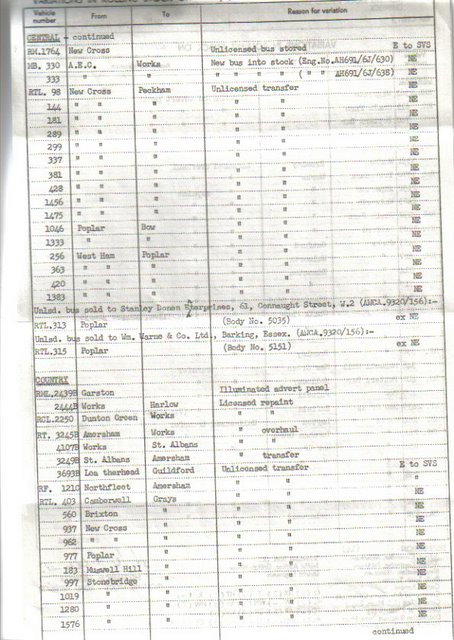 VARIATIONS IN ROLLING STOCK
Vehicle number From To Reason for variation
CENTRAL - continued
RM.1764 New Cross Unlicensed bus stored E to SVS
MB. 330 A.E.C. Works New bus into stock (Eng.No.AH691/6J/630) NE
333 " " " " " " ( " " AH691/6J/638) NE
RTL. 98 New Cross Peckham Unlicensed transfer NE
144 " " " " " NE
181 " " " " " NE
289 " " " " " NE
299 " " " " " NE
337 " " " " " NE
381 " " " " " NE
428 " " " " " NE
1456 " " " " " NE
1475 " " " " " NE
1046 Poplar Bow " " NE
1333 " " " " NE
256 West Ham Poplar " " NE
363 " " " " " NE
420 " " " " " NE
1383 " " " " " NE
Unlsd. bus sold to Stanley Donen Enterprises, 61, Connaught Street, W.2 (AMCA.9320/156):-
RTL.313 Poplar (Body No. 5035) ex NE
Unlsd. bus sold to Wm. Warne & Co. Ltd., Barking, Essex. (AMCA.9320/156):-
RTL.315 Poplar (Body No. 5151) ex NE
COUNTRY
RML.2439B Garston Illuminated advert panel
2444B Works Harlow Licensed repaint
RCL.2250 Dunton Green Works " "
RT. 3245B Amersham Works " overhaul
4107B Works St. Albans " "
3249B St. Albans Amersham " transfer
3693B Lea therhead Guildford Unlicensed transfer E to SVS
RF. 1210 Northfleet Amersham " " "
RTL. 403 Camberwell Grays " " NE
560 Brixton " " " NE
937 New Cross " " " NE
962 " " " " " NE
977 Poplar " " " NE
183 Muswell Hill " " " NE
997 Stonebridge " " " NE
1019 " " " " NE
1280 " " " " NE
1576 " " " " NE
continued